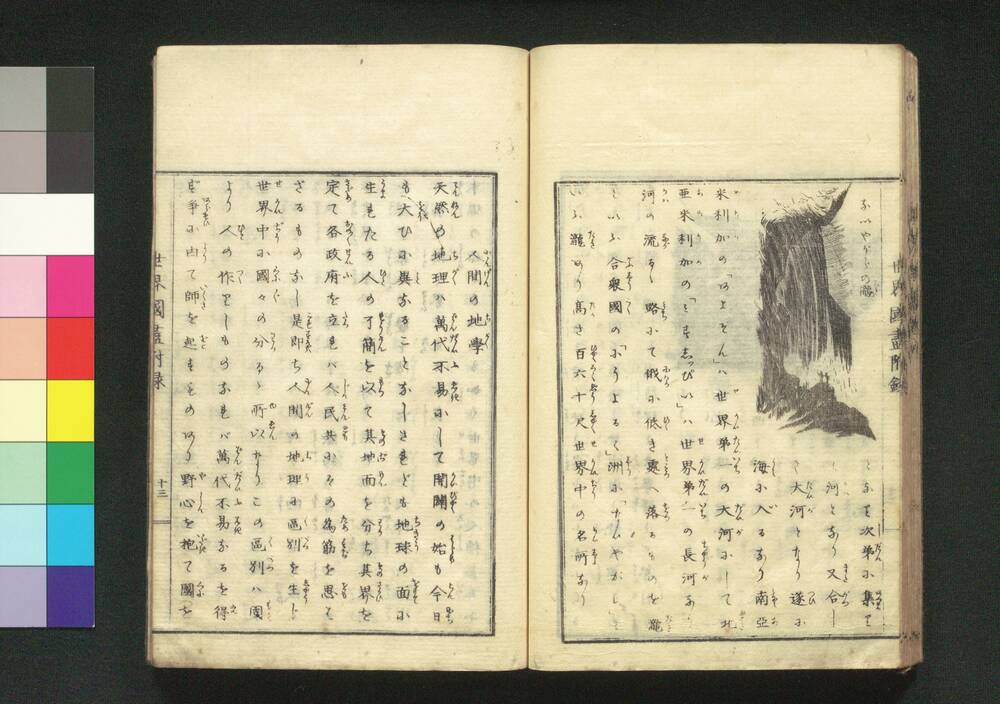 ないやがらの瀧
次第に集
河となり又合し
大河となり遂に
海に入るなり南亞
米利加の「あまぞん」ハ世界第一の大河にして北
亜米利加の「みすしつぴい」ハ世界第一の長河なり
河の流るゝ路にて俄に低き處へ落るものを瀧
といふ合衆國の「にうよるく」洲に「ないやがら」と
いふ瀧あり高さ百六十尺世界中の名所なり
世界國盡附録
人間の地學
天然の地理ハ萬代不易にして開闢の始も今日
も大ひに異なることなしされども地球の面に
生れたる人の了簡を以て其地面を分ち其界を
定て各政府を立れバ人民共に々の為筋を思て
ざるものなし是即ち人間の地理に區別を生じ
世界中に國々の分るゝ所以なりこの區別ハ固
より人の作せしものなれバ萬代不易なるを得
ず爭に由て師を起すものあり野心を抱て國を
世界國盡附録
十三